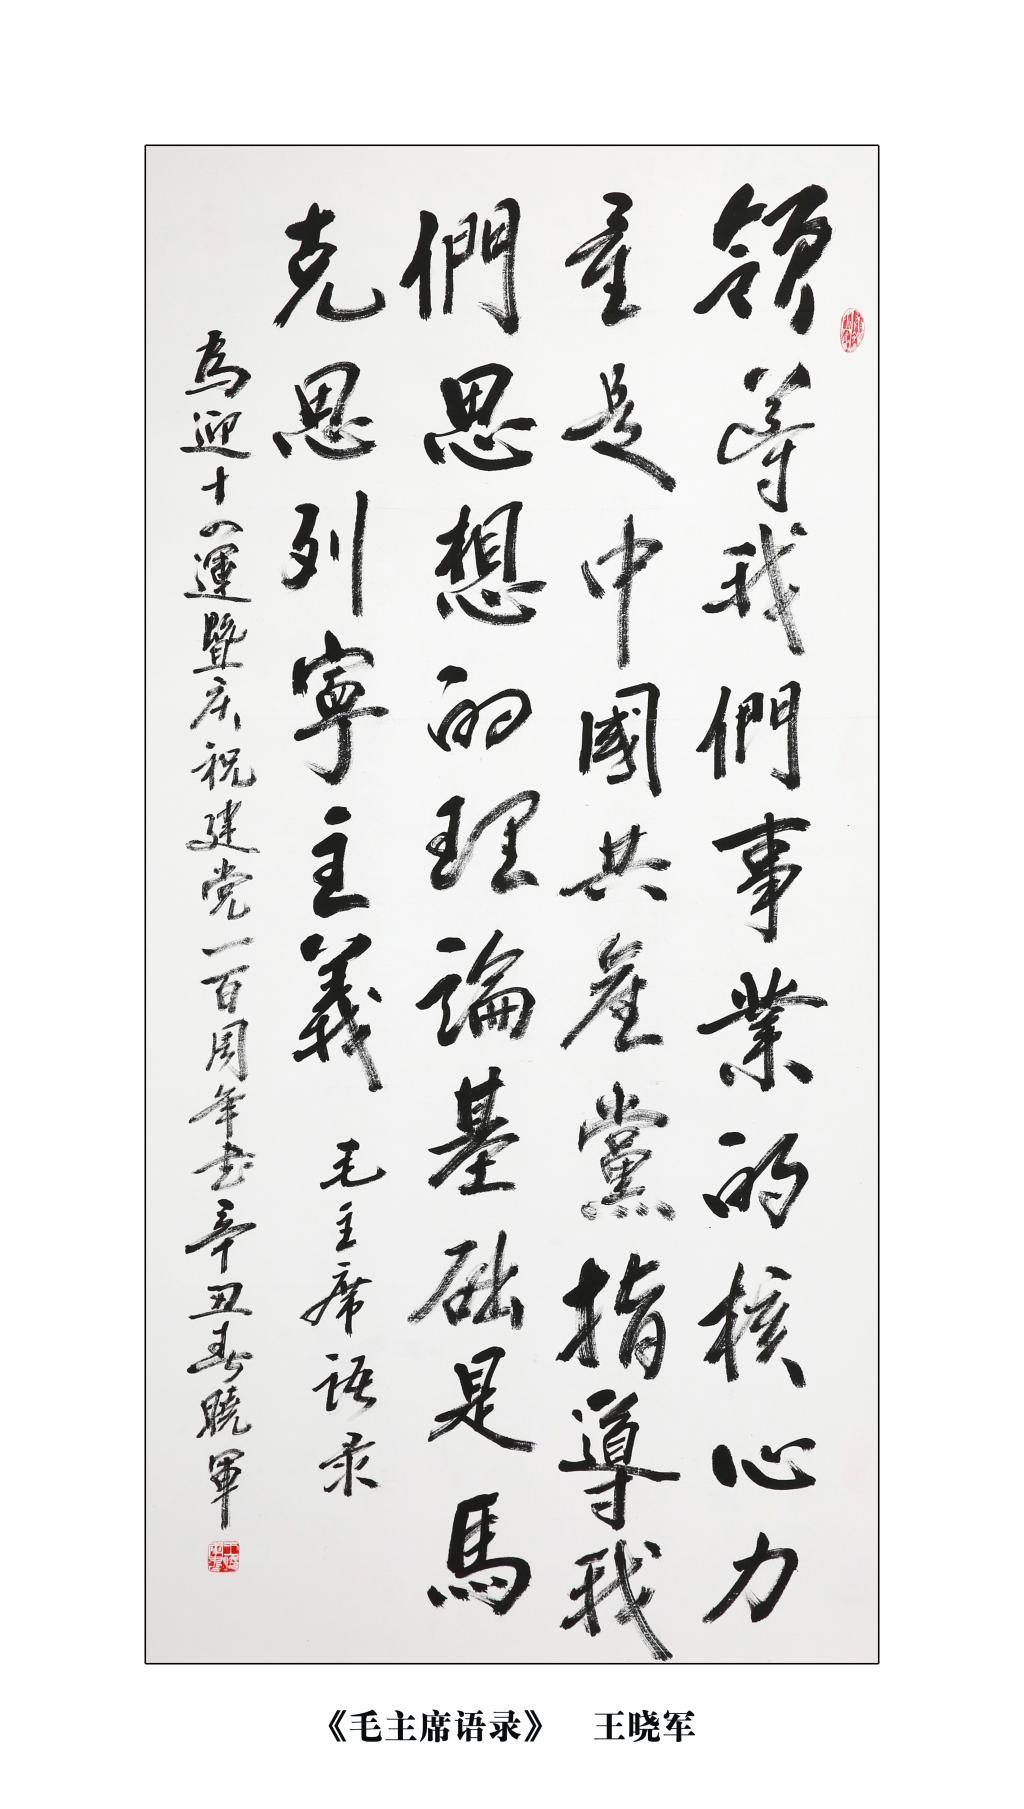 領導我們事業的核心力
量是中國共產黨指導我
們思想的理論基础是馬
克思列寧主義 毛主席语录
為迎十四運暨庆祝建党一百周年书辛丑春曉軍
《毛主席语录》 王晓军